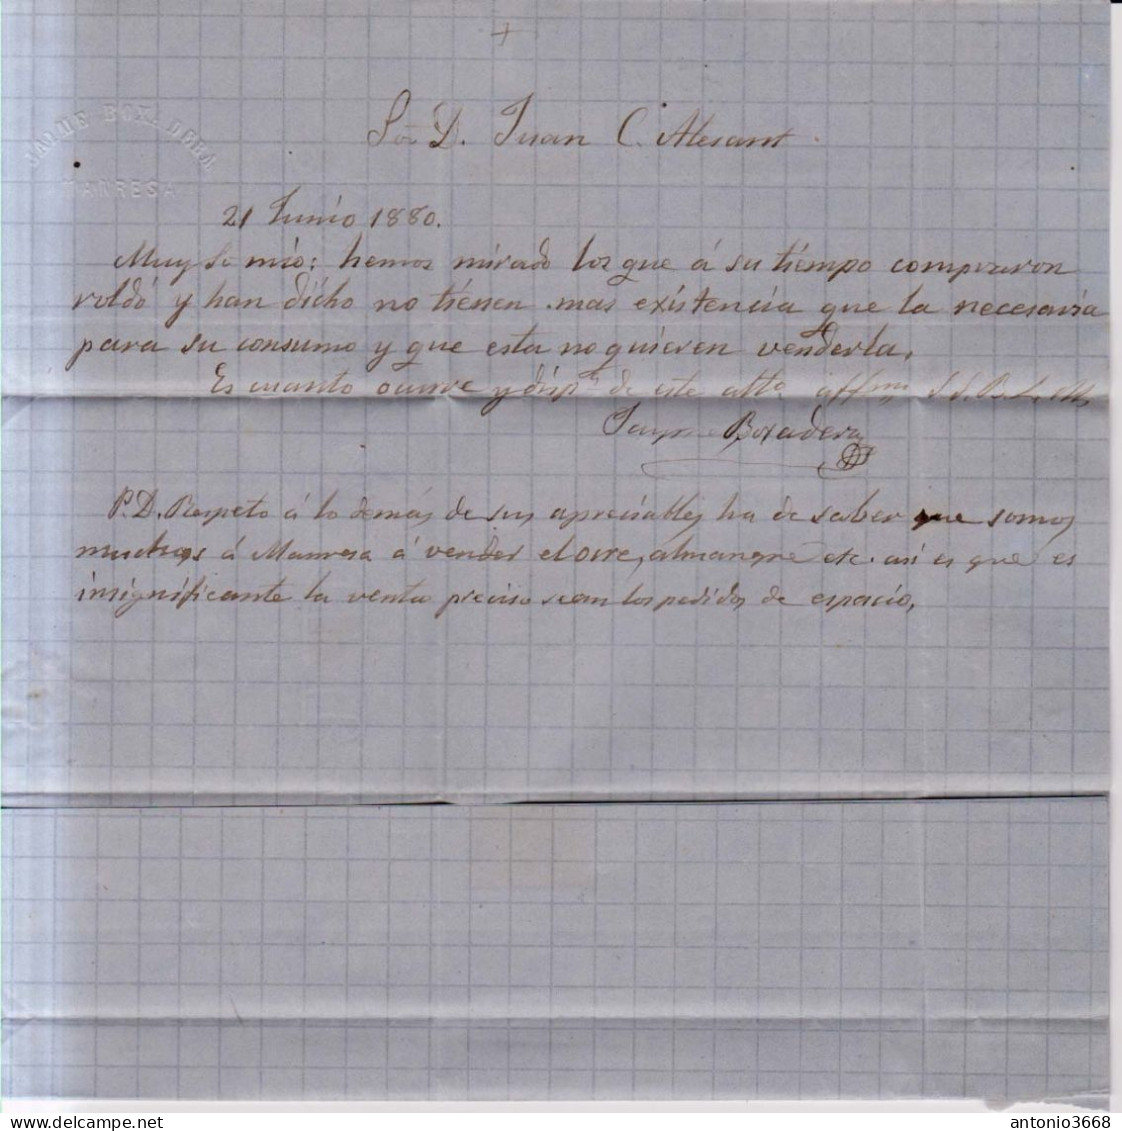 JAIME BOXADERA
MANRESA
Sor D. Juan C. Alesant
21 Junio 1880.
Muy Sr mio: hemos mirado los que á su tiempo compraron
roldó y han dicho no tienen mas existencia que la necesaria
para su consumo y que esta no quieren venderla.
Es cuanto ocurre y disp. de este atto. affmo S. S. Q. B. S. M.
Jayme Boxadera
P.D. Respeto á lo demás de sus apreciables ha de saber que somos
muchos á Manresa á vender el ocre, almangre etc. asi es que es
insignificante la venta preciso sean los pedidos de espacio,
antonio3668